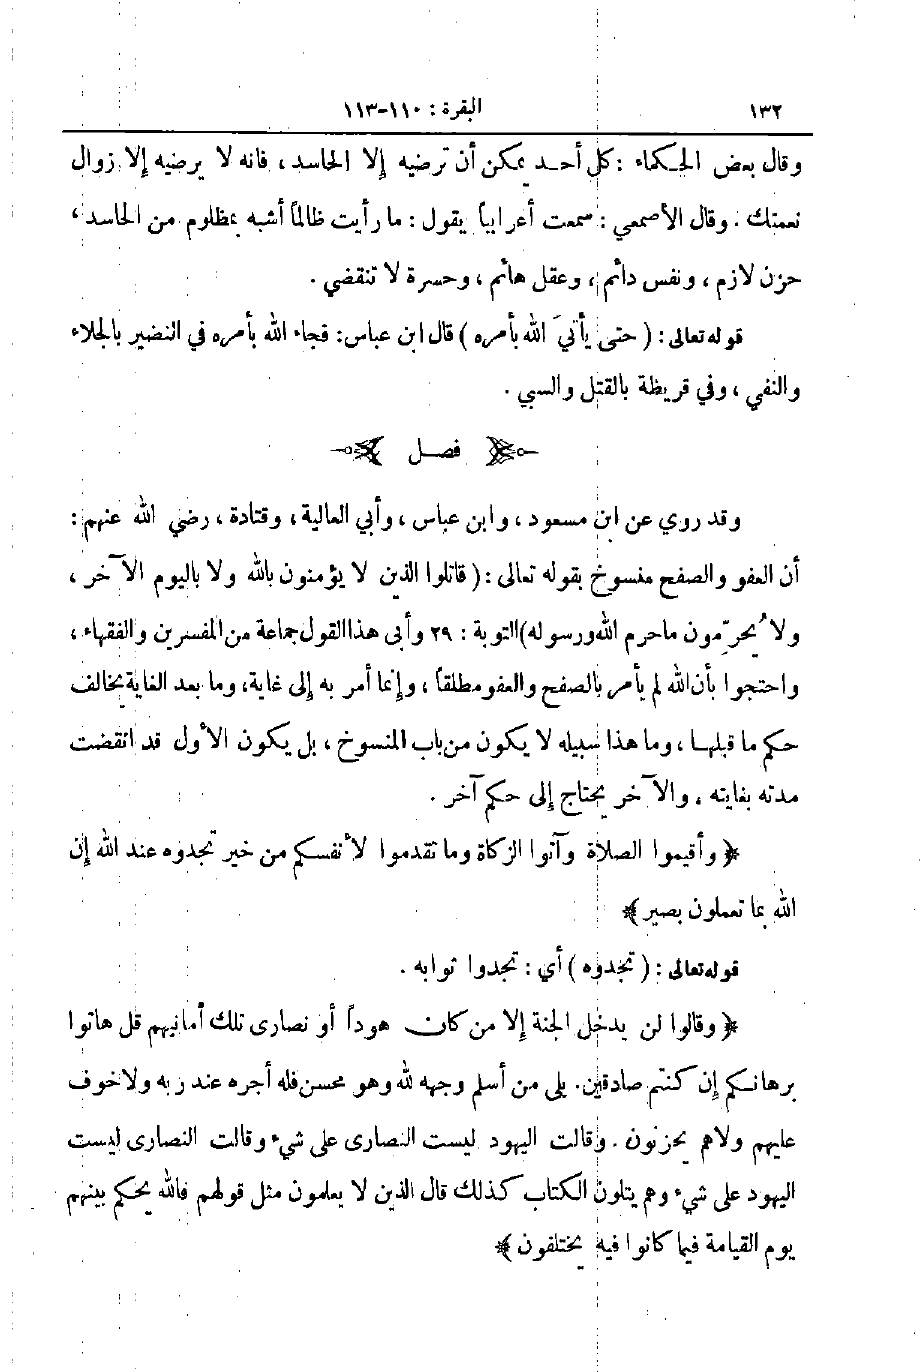 ١٣٢ البقرة : ١١٠-١١٣
وقال بعض الحكماء : كل أحد يمكن أن ترضيه إلا الحاسد ، فانه لا يرضيه إلا زوال
نعمتك . وقال الأصمعي : سمعت أعرابياً يقول : ما رأيت ظالماً أشبه بمظلوم من الحاسد ،
حزن لازم ، ونفس دائم ، وعقل هائم ، وحسرة لا تنقضي .
قوله تعالى : ( حتى يأتيَ الله بأمره ) قال ابن عباس : فجاء الله بأمره في النضير بالجلاء
والنفي ، وفي قريظة بالقتل والسبي .
فصل
وقد روي عن ابن مسعود ، وابن عباس ، وأبي العالية ، وقتادة ، رضي الله عنهم :
أن العفو والصفح منسوخ بقوله تعالى : ( قاتلوا الذين لا يؤمنون بالله ولا باليوم الآخر ،
ولا يُحرّمون ماحرم الله ورسوله ) التوبة : ٢٩ وأبى هذا القول جماعة من المفسرين والفقهاء ،
واحتجوا بأن الله لم يأمر بالصفح والعفو مطلقاً ، وإنما أمر به إلى غاية ، وما بعد الغاية يخالف
حكم ما قبلها ، وما هذا سبيله لا يكون من باب المنسوخ ، بل يكون الأول قد انقضت
مدته بغايته ، والآخر يحتاج إلى حكم آخر .
﴿ وأقيموا الصلاة وآتوا الزكاة وما تقدموا لأنفسكم من خير تجدوه عند الله إن
الله بما تعملون بصير ﴾
قوله تعالى : ( تجدوه ) أي : تجدوا ثوابه .
﴿ وقالوا لن يدخل الجنة إلا من كان هوداً أو نصارى تلك أمانيهم قل هاتوا
برهانكم إن كنتم صادقين . بلى من أسلم وجهه لله وهو محسن فله أجره عند ربه ولا خوف
عليهم ولا هم يحزنون . وقالت اليهود ليست النصارى على شيء وقالت النصارى ليست
اليهود على شيء وهم يتلون الكتاب كذلك قال الذين لا يعلمون مثل قولهم فالله يحكم بينهم
يوم القيامة فيما كانوا فيه يختلفون ﴾